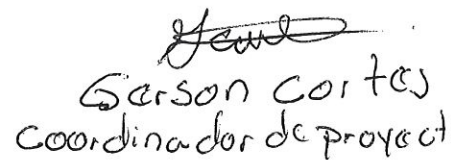 Gerson Cortes
coordinador de proyect